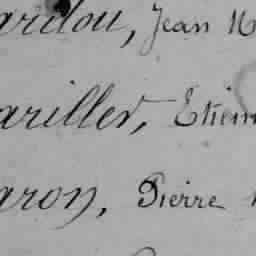 ardou, Jean M
ariller, Etien
aron, Pierre